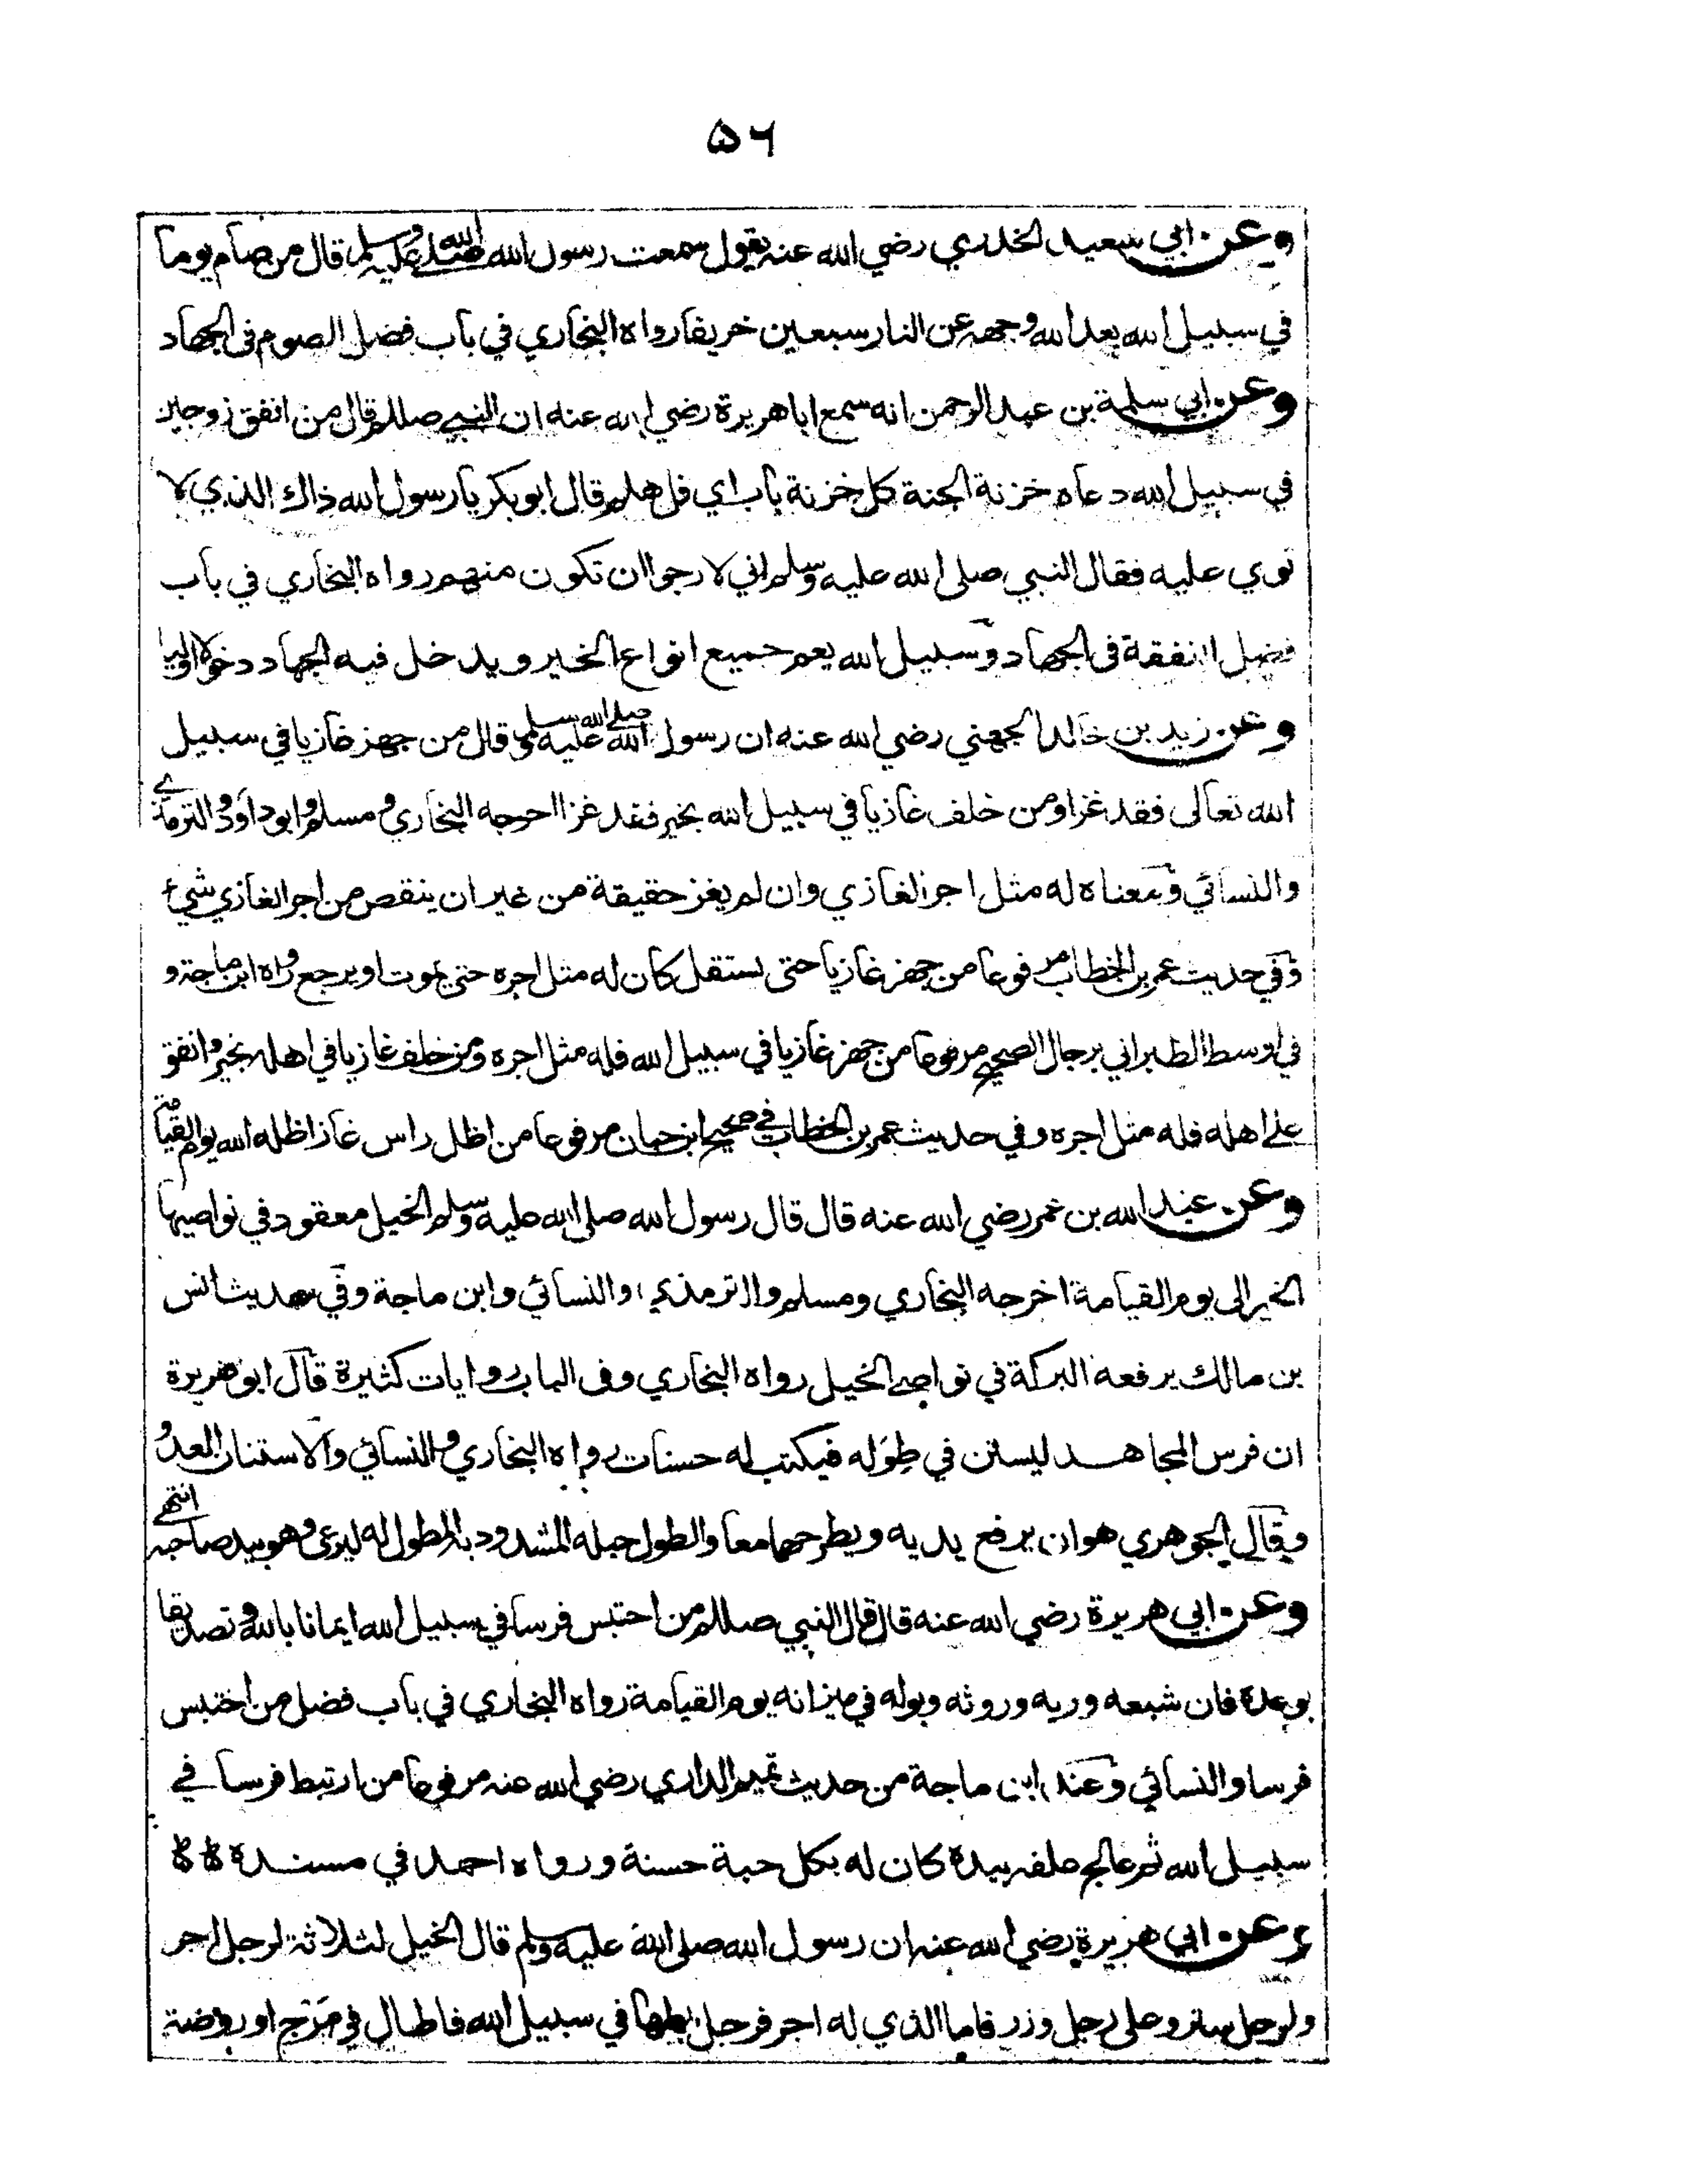 ٥٦
وعن ابي سعيد الخدري رضي الله عنه يقول سمعت رسول الله صلى الله عليه وسلم قال من صام يوما
في سبيل الله بعد الله وجهه عن النار سبعين خريفا رواه البخاري في باب فضل الصوم في الجهاد
وعن ابي سلمة بن عبد الرحمن انه سمع ابا هريرة رضي الله عنه ان النبي صللم قال من انفق زوجين
في سبيل الله دعاه خزنة الجنة كل خزنة باب اي فل هلم قال ابو بكر يا رسول الله ذاك الذي لا
توي عليه فقال النبي صلى الله عليه وسلم اني لا رجوا ان تكون منهم رواه البخاري في باب
فضل النفقة في الجهاد وسبيل الله يعم جميع انواع الخير ويدخل فيه الجهاد دخولا اوليا
وعن زيد بن خالد الجهني رضي الله عنه ان رسول الله صلى الله عليه وسلم قال من جهز غازيا في سبيل
الله تعالى فقد غزا ومن خلف غازيا في سبيل الله بخير فقد غزا اخرجه البخاري ومسلم وابو داود والترمذي
والنسائي ومعناه له مثل اجر الغازي وان لم يغز حقيقة من غير ان ينقص من اجر الغازي شيء
وفي حديث عمر بن الخطاب مرفوعا من جهز غازيا حتى يستقل كان له مثل اجره حتى يموت او يرجع رواه ابن ماجة و
في اوسط الطبراني برجال الصحيح مرفوعا من جهز غازيا في سبيل الله فله مثل اجره ومن خلف غازيا في اهله بخير وانفق
على اهله فله مثل اجره وفي حديث عمر بن الخطاب في صحيح ابن حبان مرفوعا من اظل راس غاز اظله الله يوم القيامة
وعن عبد الله بن عمر رضي الله عنه قال قال رسول الله صلى الله عليه وسلم الخيل معقود في نواصيها
الخير الى يوم القيامة اخرجه البخاري ومسلم والترمذي والنسائي وابن ماجة وفي حديث انس
بن مالك يرفعه البركة في نواصي الخيل رواه البخاري وفي الباب روايات كثيرة قال ابو هريرة
ان فرس المجاهد ليستن في طِوَله فيكتب له حسنات رواه البخاري والنسائي والاستنان العدو
وقال الجوهري هو ان يرفع يديه ويطرحهما معا والطول حبله المشدود به المطول له ليرعى وهو بيد صاحبه انتهى
وعن ابي هريرة رضي الله عنه قال قال النبي صللم من احتبس فرسا في سبيل الله ايمانا بالله وتصديقا
بوعده فان شبعه وريه وروثه وبوله في ميزانه يوم القيامة رواه البخاري في باب فضل من احتبس
فرسا والنسائي وعند ابن ماجة من حديث تميم الداري رضي الله عنه مرفوعا من ارتبط فرسا في
سبيل الله ثم عالج علفه بيده كان له بكل حبة حسنة ورواه احمد في مسنده
وعن ابي هريرة رضي الله عنه ان رسول الله صلى الله عليه وسلم قال الخيل لثلاثة لرجل اجر
ولرجل ستر وعلى رجل وزر فاما الذي له اجر فرجل ربطها في سبيل الله فاطال في مَرْج او روضة